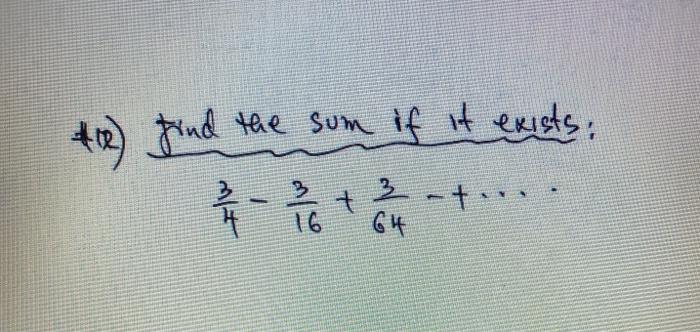 #12) Find the sum if it exists:
3/4 - 3/16 + 3/64 - + ....